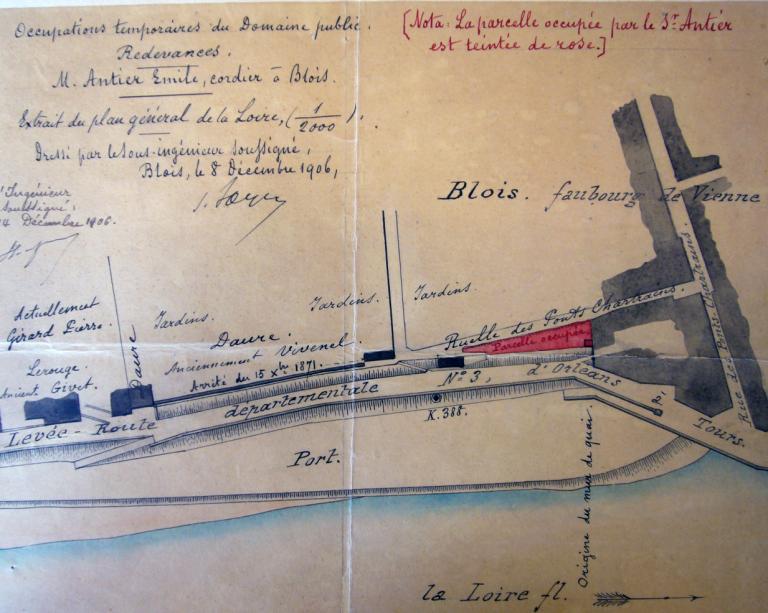 Occupations temporaires du Domaine public.
Redevances.
M. Antier Emile, cordier à Blois.
Extrait du plan général de la Loire, (1/2000).
Dressé par le Sous-ingénieur soussigné,
Blois, le 8 Décembre 1906,
[Nota: La parcelle occupée par le Sr. Antier
est teintée de rose.]
l'Ingénieur
soussigné:
14 Décembre 1906.
Blois. faubourg de Vienne
Actuellement
Girard Pierre.
Lerouge.
Ancient. Givet.
Daure
Jardins.
Jardins.
Jardins.
Daure.
Anciennement Vivenel.
Arrêté du 15 Xbre 1871.
Ruelle des Ponts Chartrains.
Parcelle occupée
Rue des Ponts Chartrains.
Levée - Route départementale No 3, d'Orléans
Tours.
K. 388.
Port.
Origine du mur de quai.
la Loire fl.